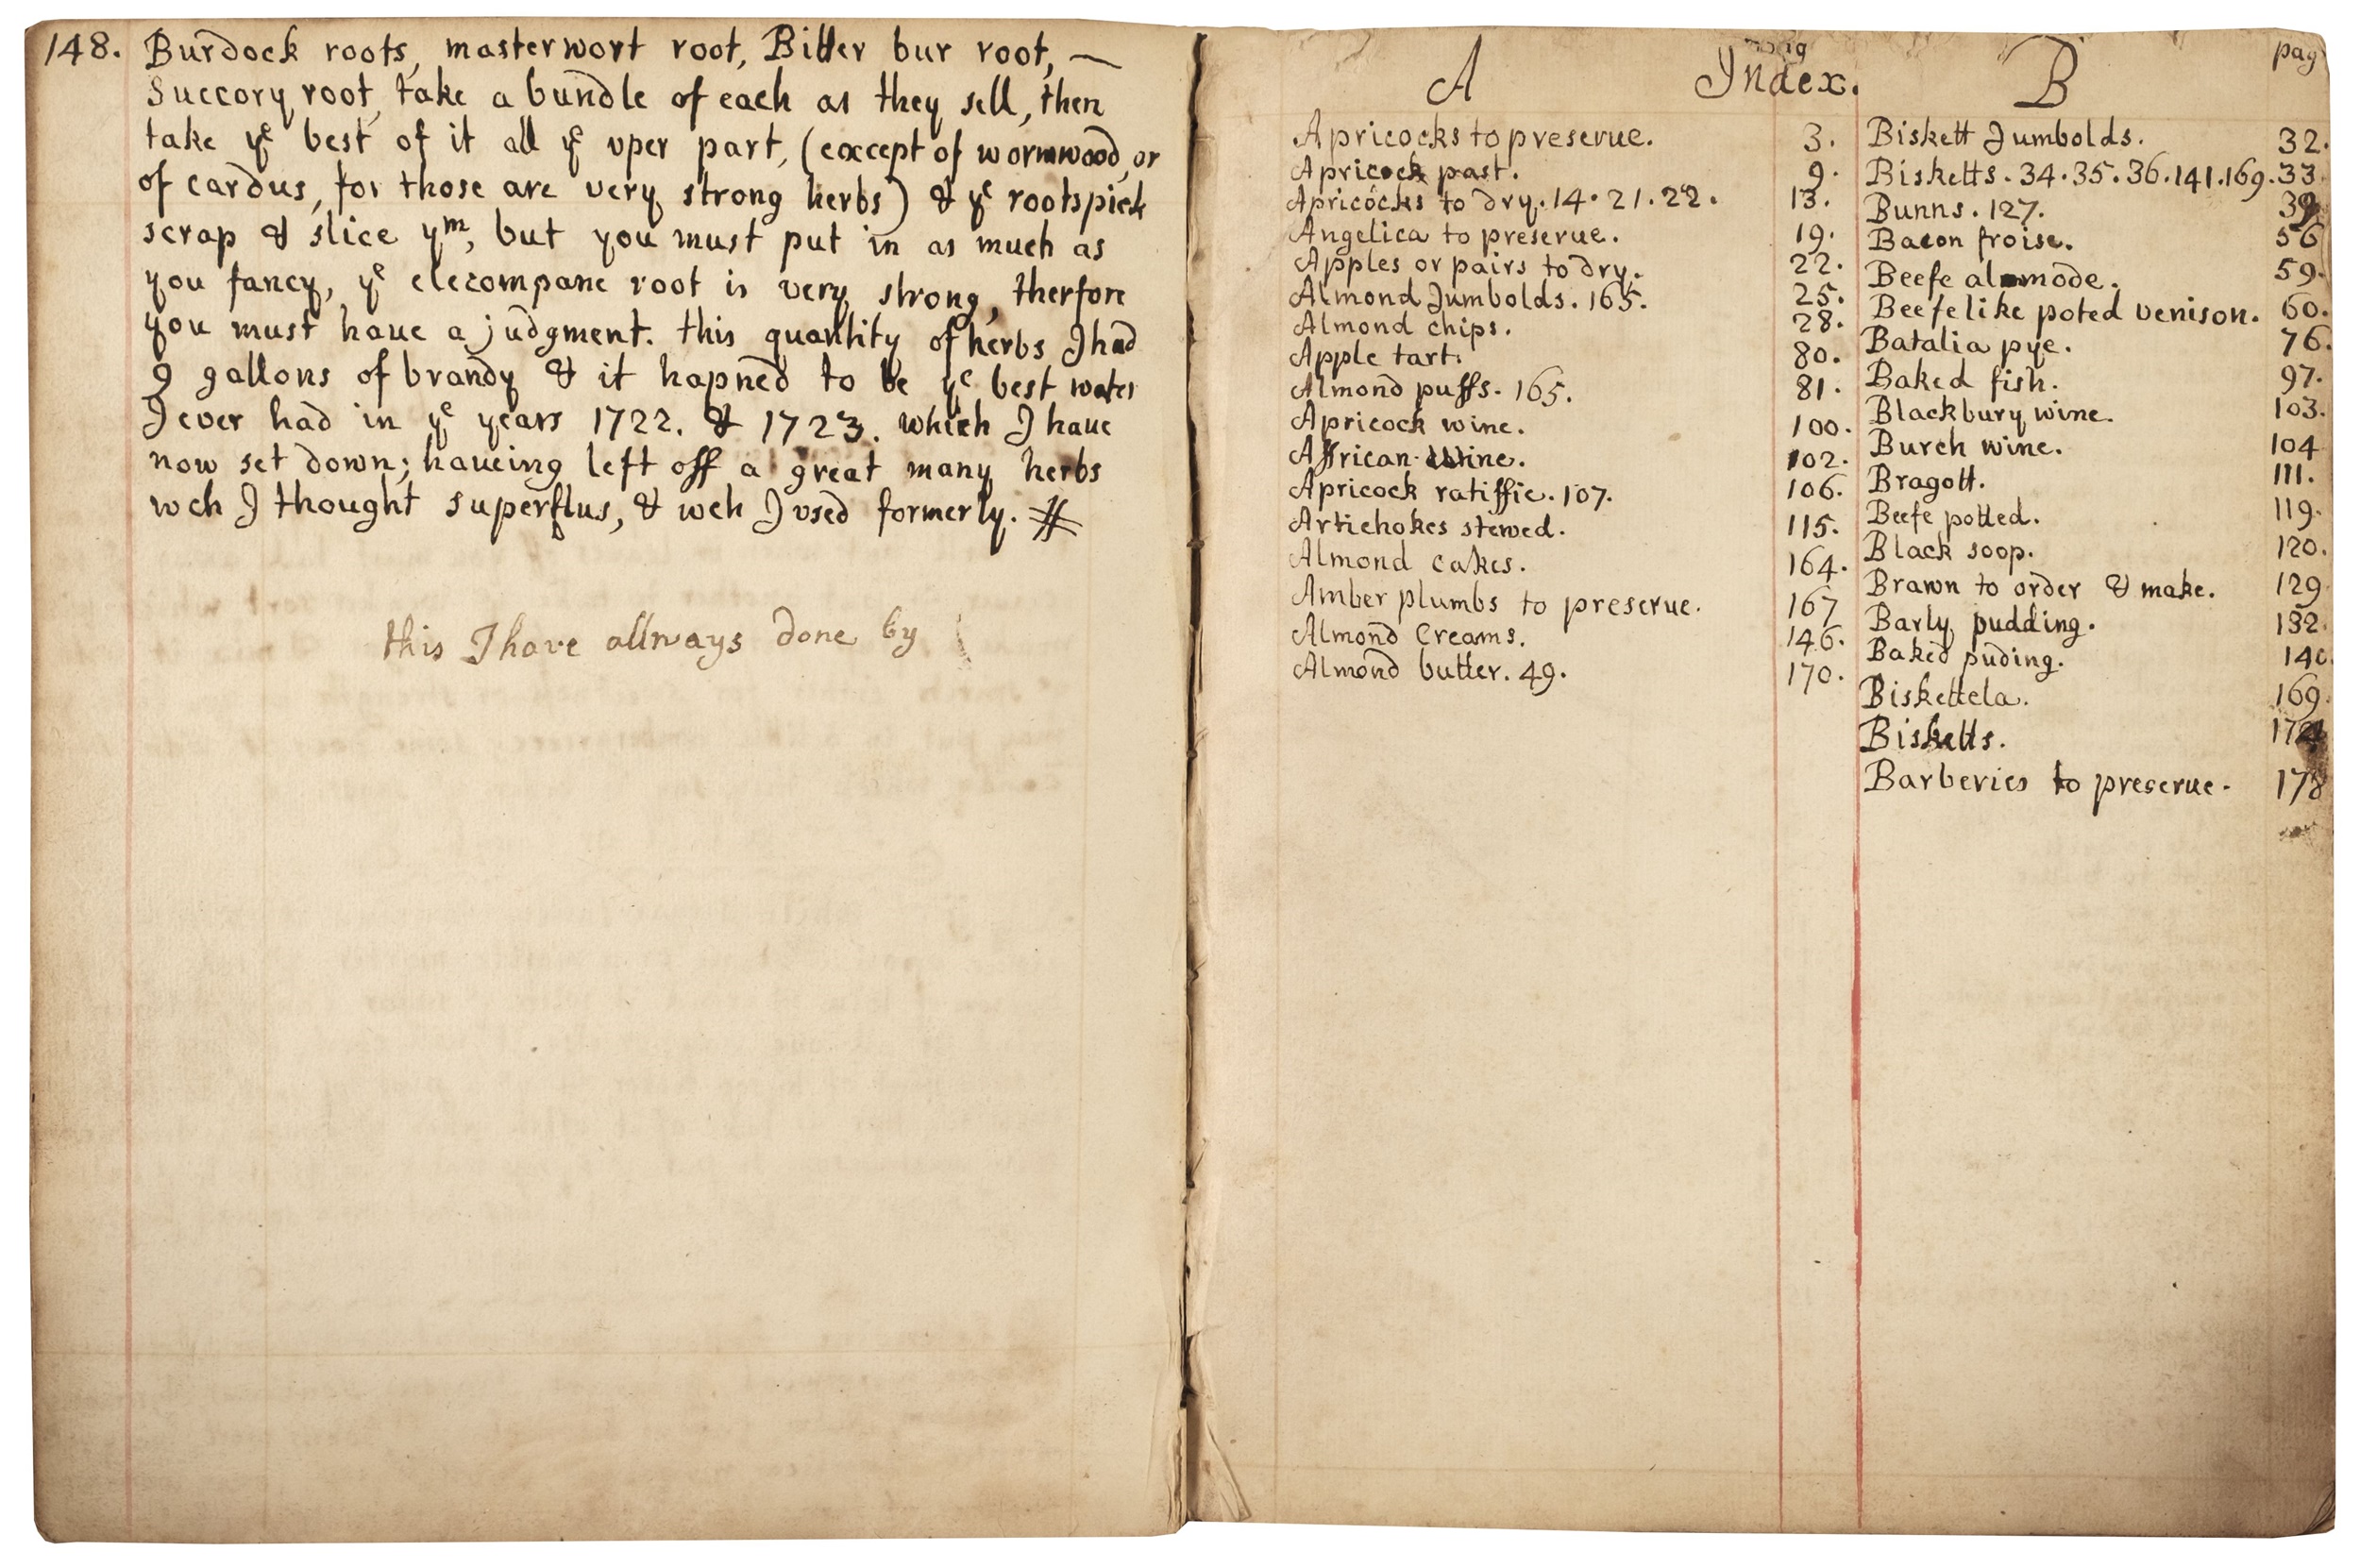 148. Burdock roots, masterwort root, Bitter bur root, —
Succory root, take a bundle of each as they sell, then
take yᵉ best of it all yᵉ vper part, (except of wormwood, or
of cardus, for those are very strong herbs) & yᵉ roots pick
scrap & slice yᵐ, but you must put in as much as
you fancy, yᵉ elecompane root is very strong, therfore
you must haue a judgment. this quantity of herbs I had
9 gallons of brandy & it hapned to be yᵉ best water
I ever had in yᵉ years 1722. & 1723. which I haue
now set down; haueing left off a great many herbs
wch I thought superflus, & wch I vsed formerly.
this I have allways done by
Index.
A pag
Apricocks to preserue. 3.
Apricock past. 9.
Apricocks to dry. 14. 21. 22. 13.
Angelica to preserue. 19.
Apples or pairs to dry. 22.
Almond Jumbolds. 165. 25.
Almond chips. 28.
Apple tart. 80.
Almond puffs. 165. 81.
Apricock wine. 100.
Affrican wine. 102.
Apricock ratiffie. 107. 106.
Artichokes stewed. 115.
Almond cakes. 164.
Amber plumbs to preserue. 167
Almond Creams. 146.
Almond butter. 49. 170.
B pag
Biskett Jumbolds. 32.
Bisketts. 34. 35. 36. 141. 169. 33.
Bunns. 127. 39.
Bacon froise. 56
Beefe alamode. 59.
Beefe like poted venison. 60.
Batalia pye. 76.
Baked fish. 97.
Blackbury wine. 103.
Burch wine. 104
Bragott. 111.
Beefe potted. 119.
Black soop. 120.
Brawn to order & make. 129
Barly pudding. 132.
Baked puding. 140.
Biskettela. 169.
Bisketts.
Barberies to preserue. 178